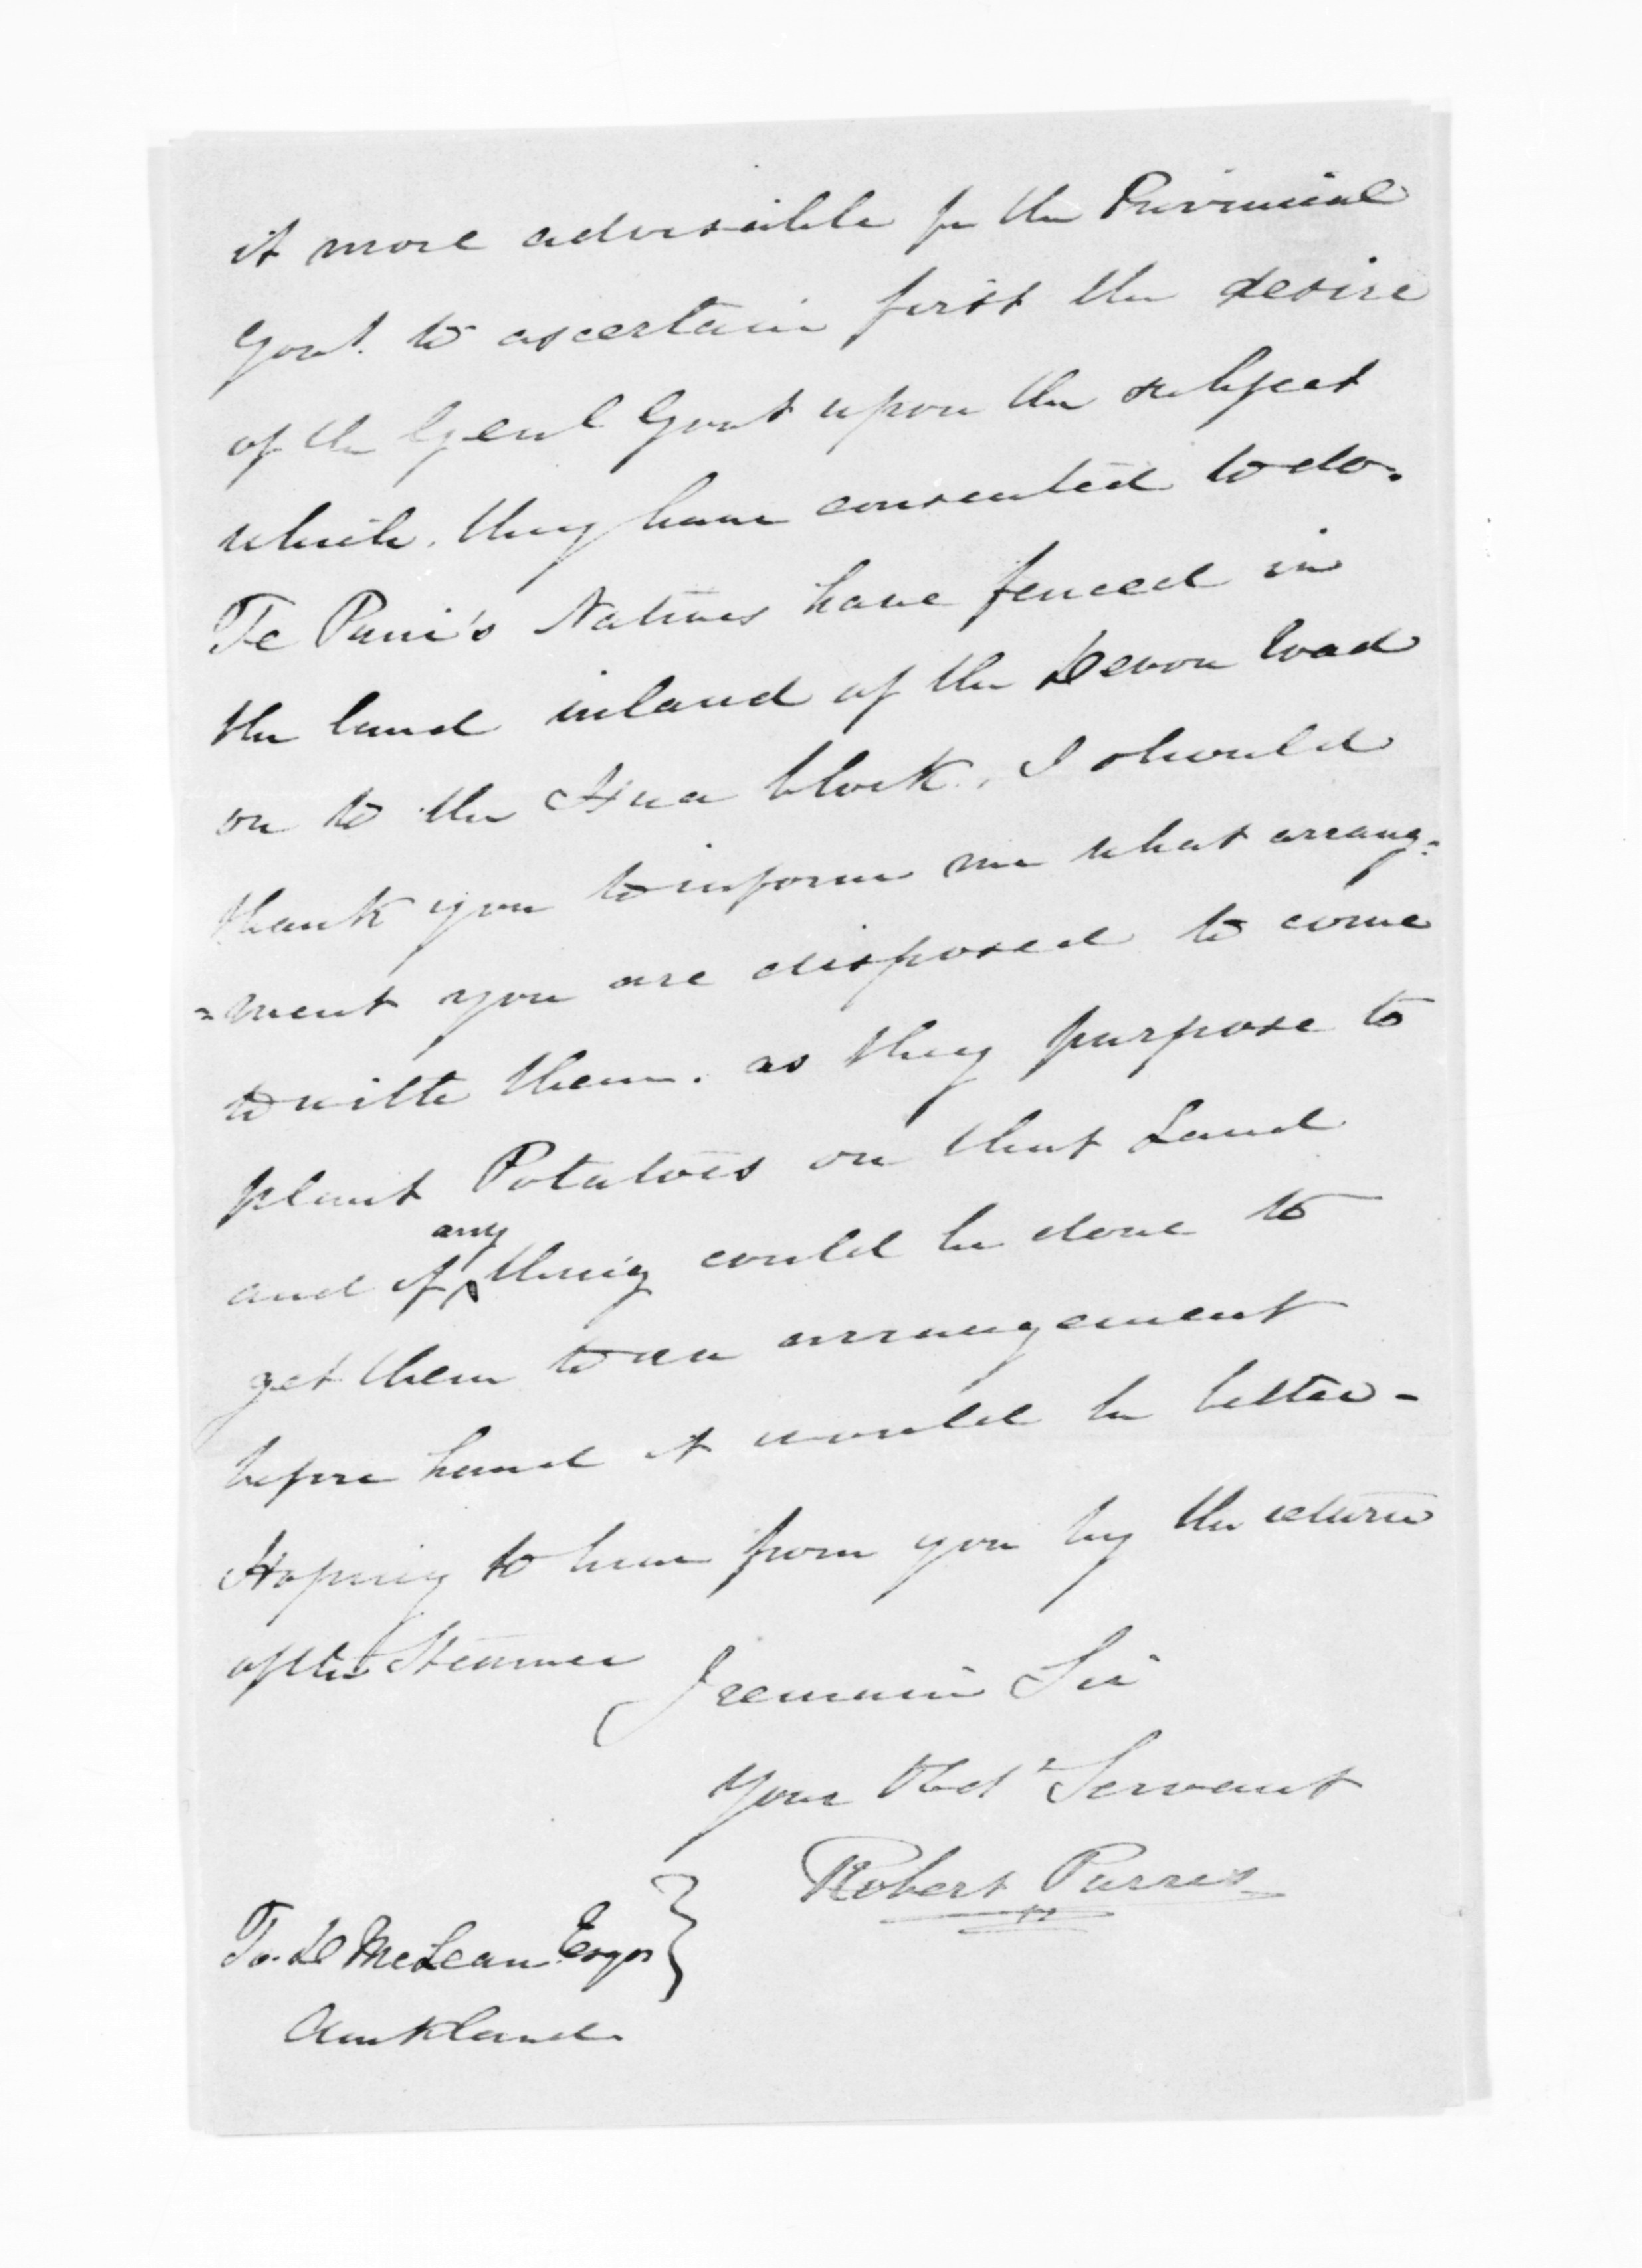 it more advisable for the Provincial
Govt. to ascertain first the desire
of the Genl Govt upon the subject
which. they have consented to do.
Te Puni's Natives have fenced in
the land inland of the Devon road
on to the Hua block. I should
thank you to inform me what arrang=
=ment you are disposed to come
to with them. as they purpose to
plant Potatoes on that Land
any
and if thing could be done to
get them to an arrangement
before hand it would be better -
Hoping to hear from you by the return
of the Steamer
I remain Sir
Your Obdt Servant
Robert Parris
To. D McLean Esqr
Auckland